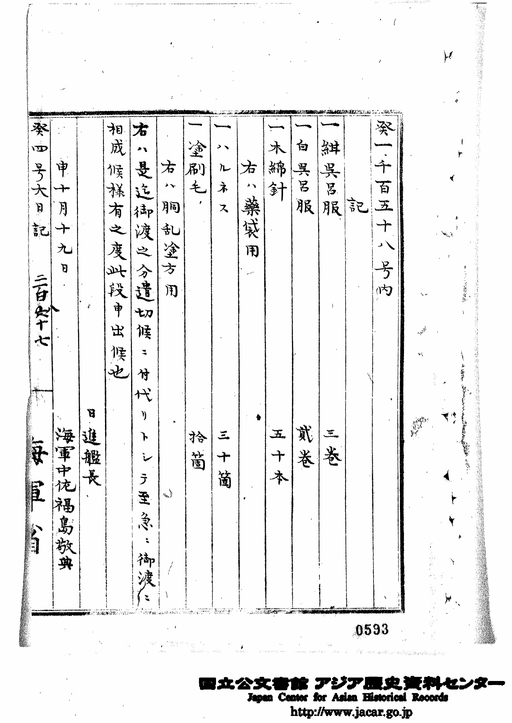 癸一千百五十八号内
記
一紺呉呂服 三巻
一白呉呂服 貳巻
一木綿針 五十本
右ハ藥袋用
一ハルネス 三十箇
一塗刷毛 拾箇
右ハ胴乱塗方用
右ハ是迄御渡之分遣切候ニ付代リトシテ至急ニ御渡ニ
相成候様有之度此段申出候也
日進艦長
申十月十九日 海軍中佐福島敬典
癸四号大日記 二百 十七
海軍省
0593
国立公文書館 アジア歴史資料センター
Japan Center for Asian Historical Records
http://www.jacar.go.jp